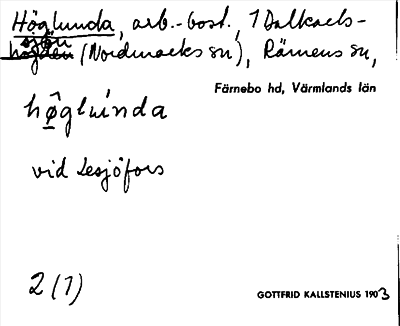 Höglunda, arb.-bost. 1 Dalkarls-
sjön
högden (Nordmarks sn), Rämens sn,
Färnebo hd, Värmlands län
hø̂glúnda
vid Lesjöfors
2 (1)
GOTTFRID KALLSTENIUS 1903